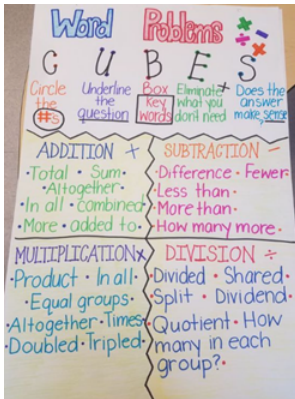 Word Problems
C U B E S
Circle the #s
Underline the question
Box Key words
Eliminate what you don't need
Does the answer make sense
ADDITION +
• Total • Sum •
Altogether •
• In all • combined
More • added to •
SUBTRACTION -
• Difference • Fewer
• Less than •
• More than •
• How many more •
MULTIPLICATION x
• Product • In all •
• Equal groups •
• Altogether • Times •
• Doubled • Tripled •
DIVISION ÷
• Divided • Shared •
• Split • Dividend •
• Quotient • How
many in each
group? •